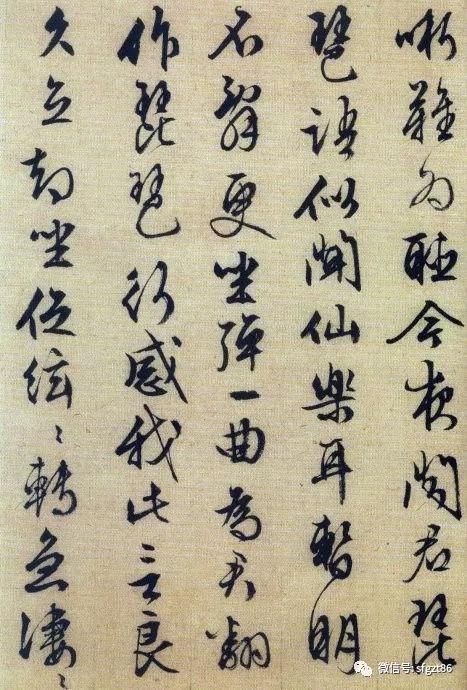 哳難為聽今夜聞君琵
琶語似聞仙樂耳暫明
辭更坐彈一曲為君翻
作琵琶行感我此言良
久立却坐促絃〻轉急淒〻
微信号: sfgzt86